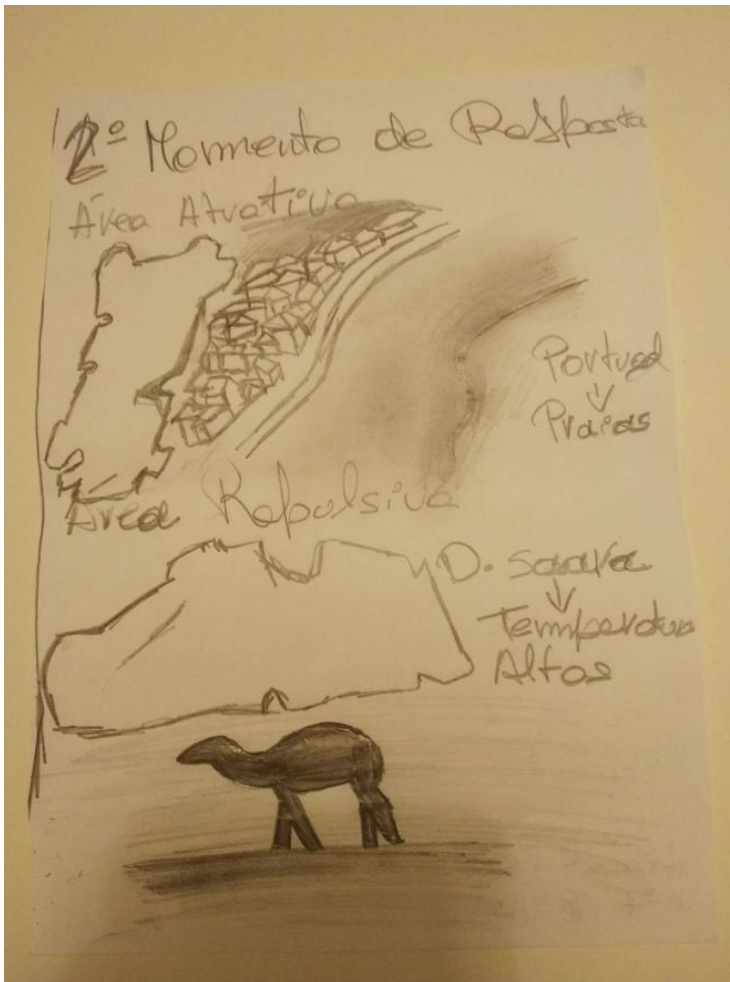 2º Momento de Resposta
Área Atrativa
Portugal
Praias
Área Repulsiva
D. Saara
Temperatura
Altas